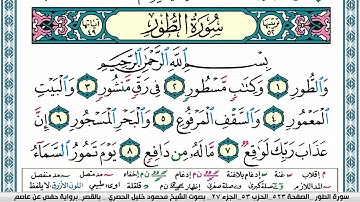 سُورَةُ الطُّورِ
بِسْمِ اللَّهِ الرَّحْمَٰنِ الرَّحِيمِ
وَالطُّورِ ١ وَكِتَابٍ مَّسْطُورٍ ٢ فِي رَقٍّ مَّنشُورٍ ٣ وَالْبَيْتِ
الْمَعْمُورِ ٤ وَالسَّقْفِ الْمَرْفُوعِ ٥ وَالْبَحْرِ الْمَسْجُورِ ٦ إِنَّ
عَذَابَ رَبِّكَ لَوَاقِعٌ ٧ مَّا لَهُ مِن دَافِعٍ ٨ يَوْمَ تَمُورُ السَّمَاءُ
سورة الطور الصفحة ٥٢٣ الحزب ٥٣ الجزء ٢٧ بصوت الشيخ محمود خليل الحصري - بالقصر برواية حفص عن عاصم